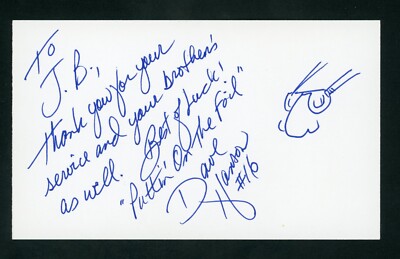 To
J.B.,
thank you for your
service and your brother's
as well. Best of Luck!
"Puttin' On the Foil"
Dave
Hanson
#16